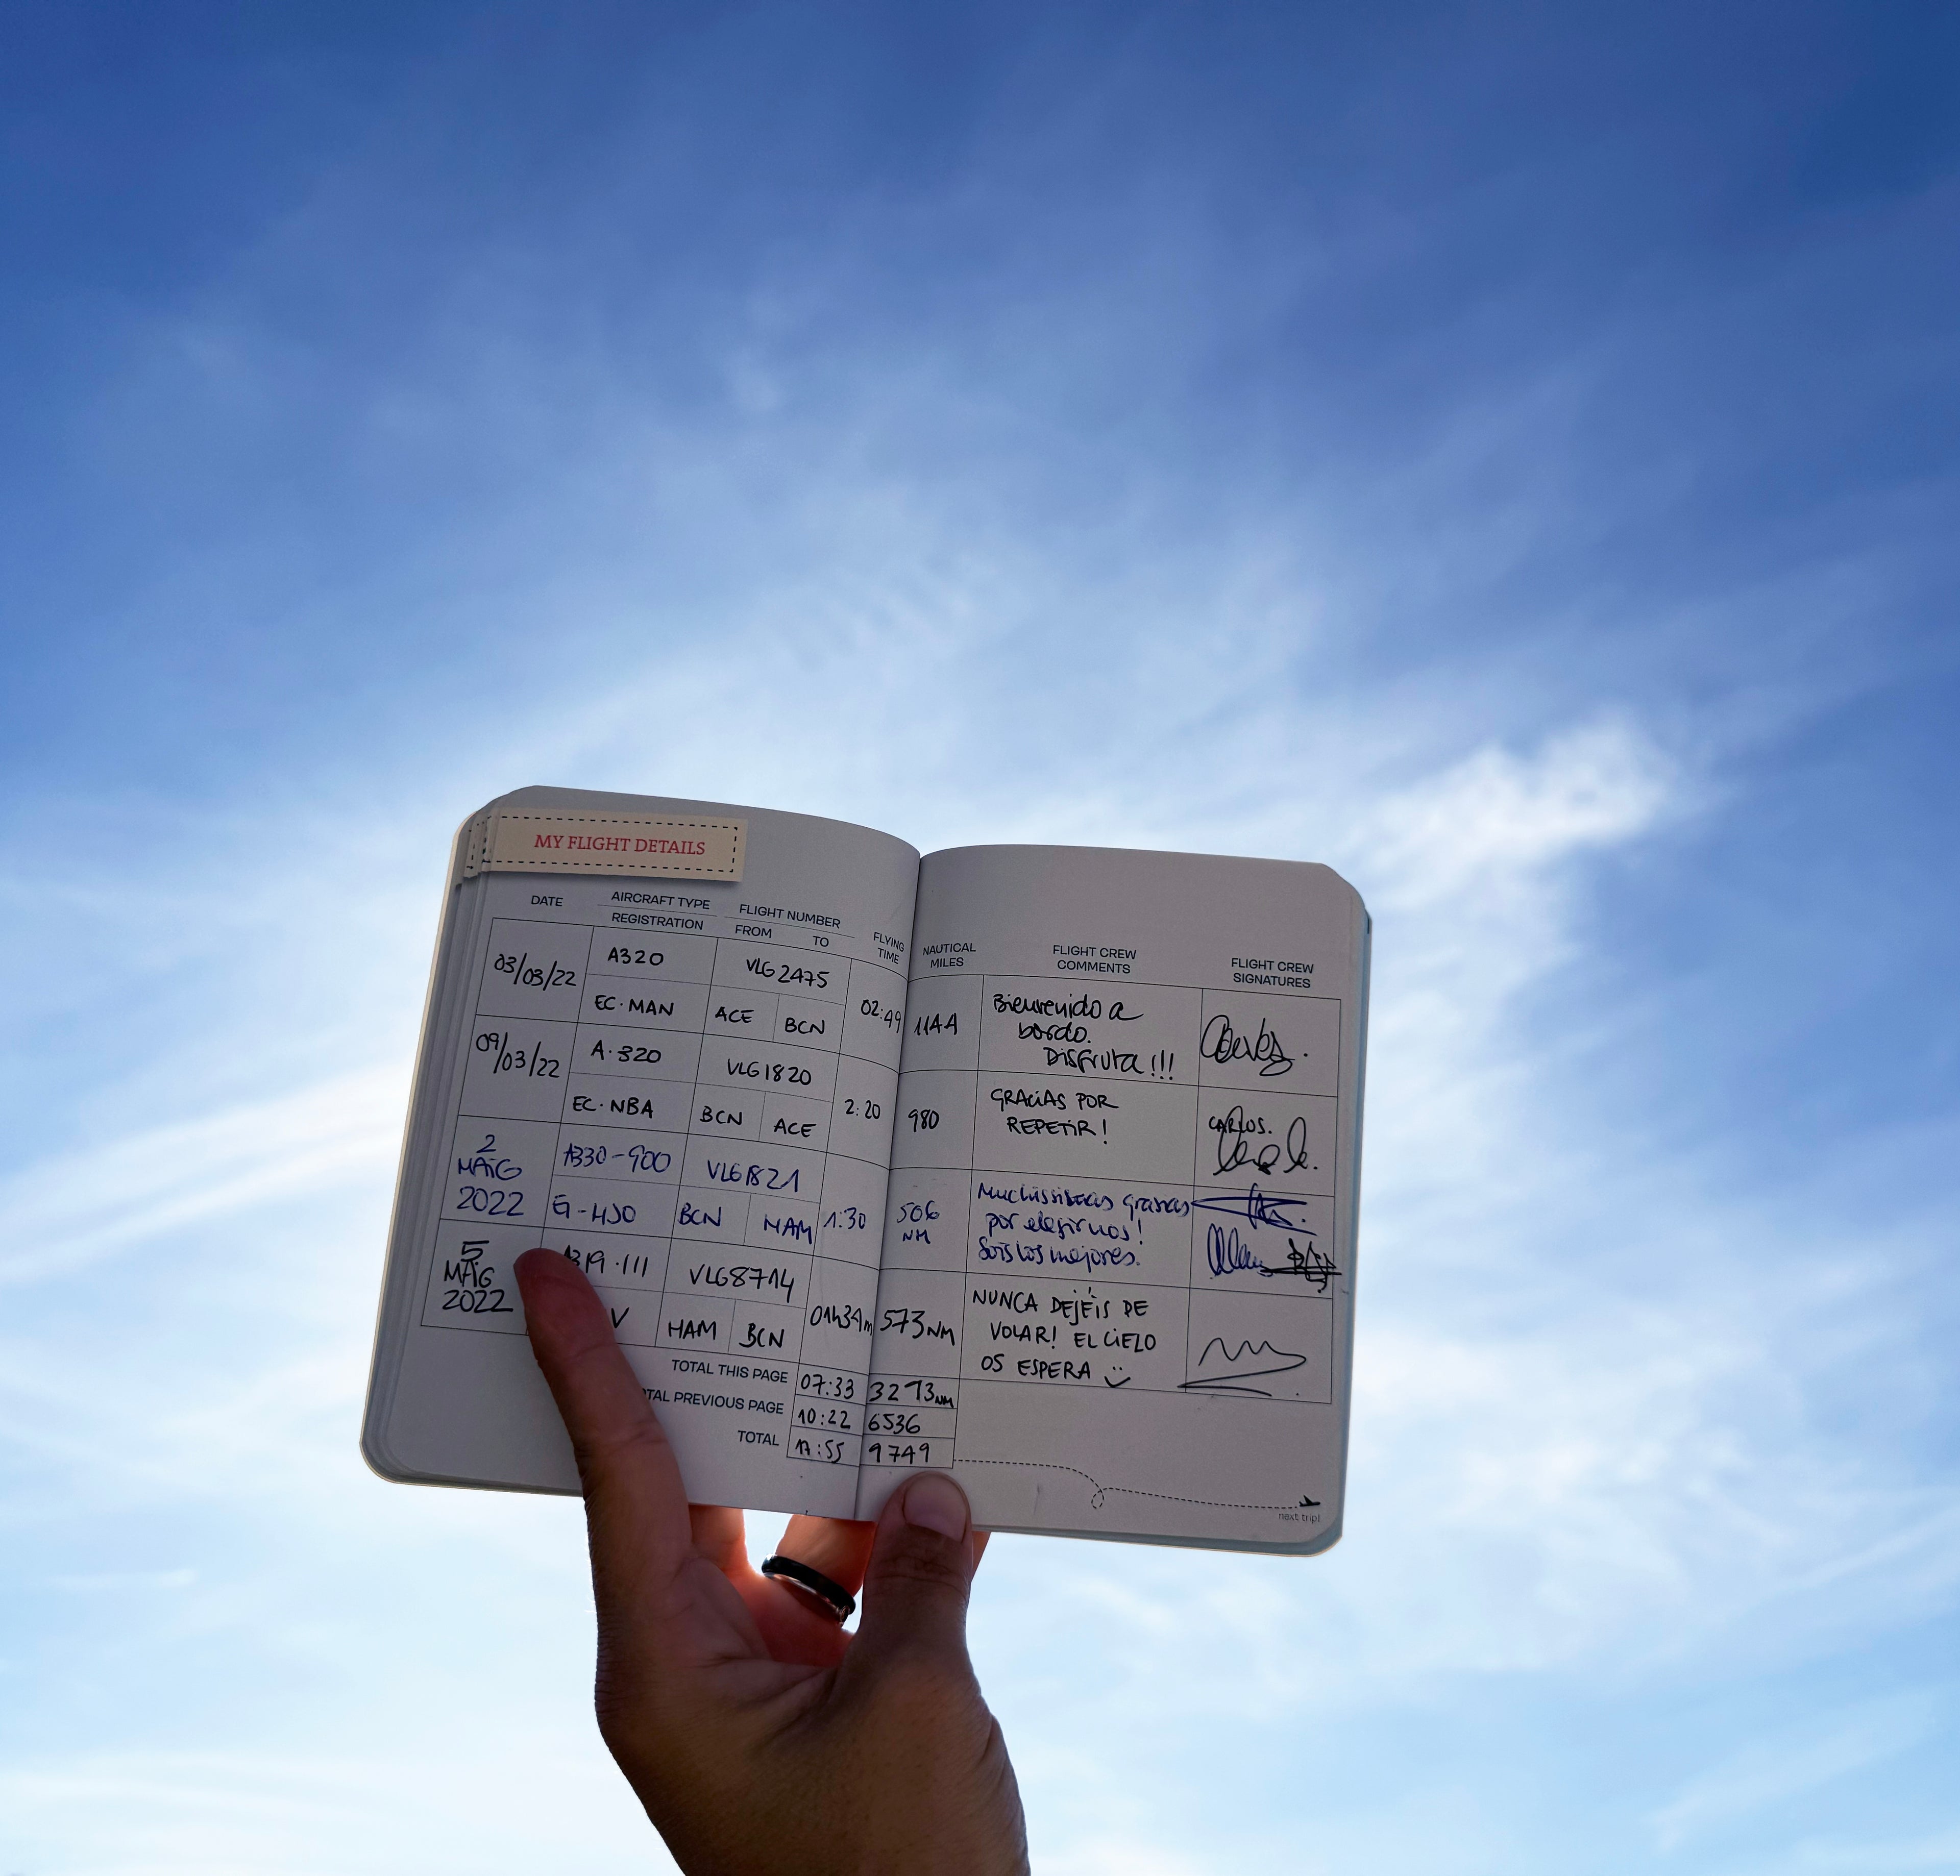 MY FLIGHT DETAILS
DATE AIRCRAFT TYPE FLIGHT NUMBER FLYING TIME NAUTICAL MILES FLIGHT CREW COMMENTS FLIGHT CREW SIGNATURES
REGISTRATION FROM TO
03/03/22 A320 VLG 2475 02:49 Bienvenido a
EC·MAN ACE BCN bordo.
Disfruta!!!
09/03/22 A·320 VLG1820 2:20 980 GRACIAS POR CARLOS.
EC·NBA BCN ACE REPETIR!
2 MAIG 2022 A330-900 VLG1821 1:30 506 NM Muchissimas gracias
BCN HAM por elegirnos!
Sois los mejores.
5 MAIG 2022 A319·111 VLG8714 01h34m 573NM NUNCA DEJÉIS DE
V HAM BCN VOLAR! EL CIELO
OS ESPERA
TOTAL THIS PAGE 07:33 3213NM
TAL PREVIOUS PAGE 10:22 6536
TOTAL 17:55 9749
next trip!